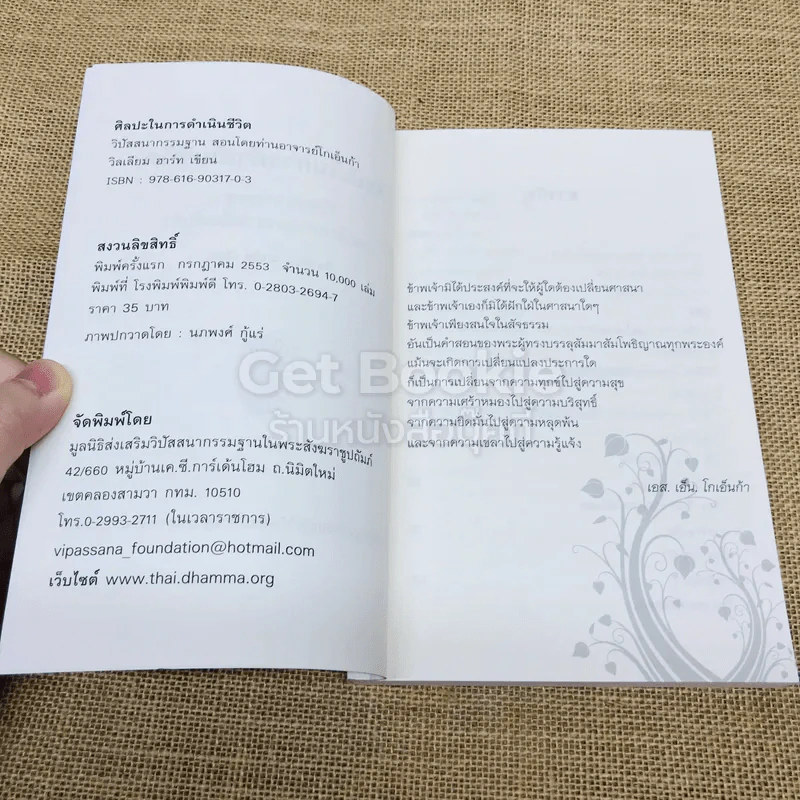 ศิลปะในการดำเนินชีวิต
วิปัสสนากรรมฐาน สอนโดยท่านอาจารย์โกเอ็นก้า
วิลเลียม ฮาร์ท เขียน
ISBN : 978-616-90317-0-3
สงวนลิขสิทธิ์
พิมพ์ครั้งแรก กรกฎาคม 2553 จำนวน 10,000 เล่ม
พิมพ์ที่ โรงพิมพ์พิมพ์ดี โทร. 0-2803-2694-7
ราคา 35 บาท
ภาพปกวาดโดย : นภพงศ์ กู้แร่
จัดพิมพ์โดย
มูลนิธิส่งเสริมวิปัสสนากรรมฐานในพระสังฆราชูปถัมภ์
42/660 หมู่บ้านเค.ซี.การ์เด้นโฮม ถ.นิมิตใหม่
เขตคลองสามวา กทม. 10510
โทร.0-2993-2711 (ในเวลาราชการ)
vipassana_foundation@hotmail.com
เว็บไซต์ www.thai.dhamma.org
ข้าพเจ้ามิได้ประสงค์ที่จะให้ผู้ใดต้องเปลี่ยนศาสนา
และข้าพเจ้าเองก็มิได้ฝักใฝ่ในศาสนาใดๆ
ข้าพเจ้าเพียงสนใจในสัจธรรม
อันเป็นคำสอนของพระผู้ทรงบรรลุสัมมาสัมโพธิญาณทุกพระองค์
แม้นจะเกิดการเปลี่ยนแปลงประการใด
ก็เป็นการเปลี่ยนจากความทุกข์ไปสู่ความสุข
จากความเศร้าหมองไปสู่ความบริสุทธิ์
จากความยึดมั่นไปสู่ความหลุดพ้น
และจากความเขลาไปสู่ความรู้แจ้ง
เอส. เอ็น. โกเอ็นก้า
Get Bookie
ร้านหนังสือบุ๊คกี้